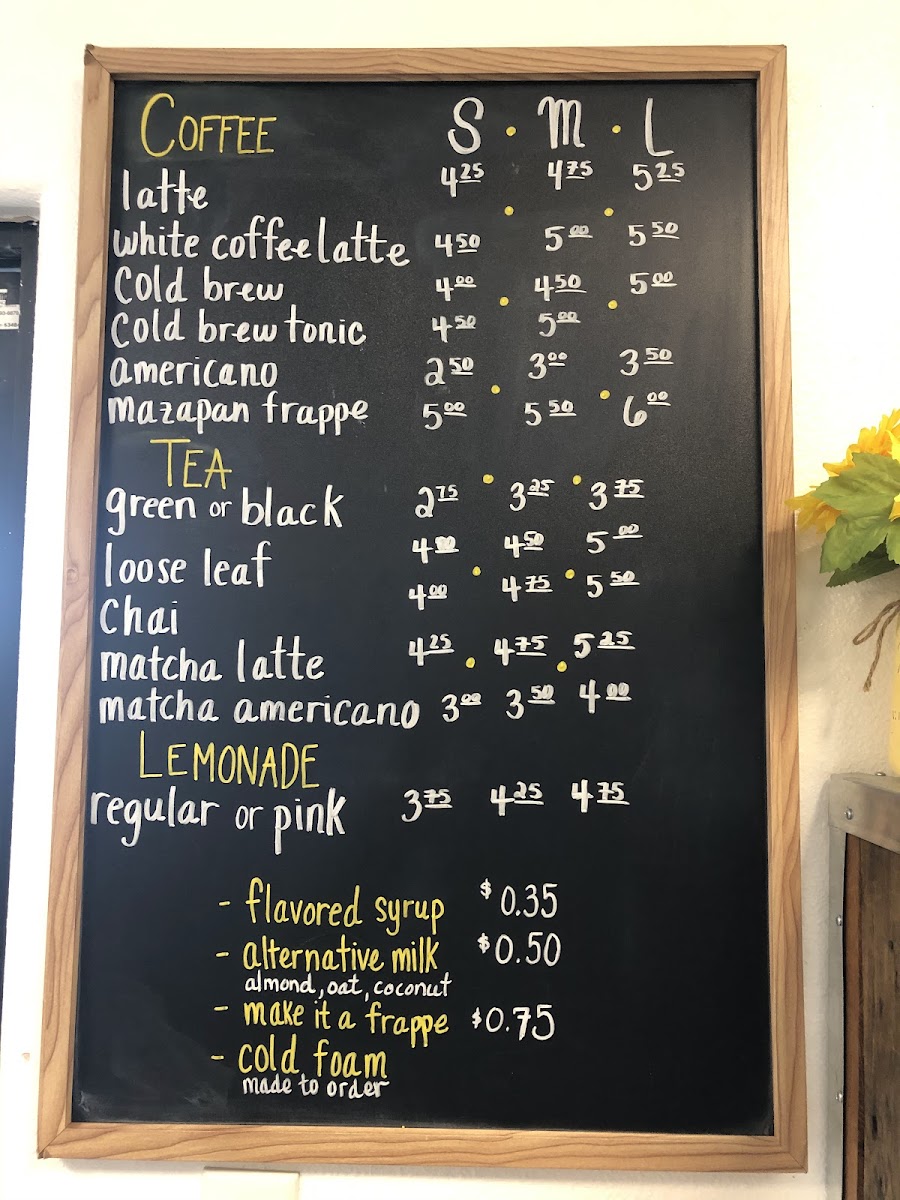 COFFEE S · M · L
latte 4.25 4.75 5.25
white coffee latte 4.50 5.00 5.50
Cold brew 4.00 4.50 5.00
Cold brew tonic 4.50 5.00
americano 2.50 3.00 3.50
mazapan frappe 5.00 5.50 6.00
TEA
green or black 2.75 3.25 3.75
loose leaf 4.00 4.50 5.00
Chai 4.00 4.75 5.50
matcha latte 4.25 4.75 5.25
matcha americano 3.00 3.50 4.00
LEMONADE
regular or pink 3.75 4.25 4.75
- flavored syrup $0.35
- alternative milk $0.50
almond, oat, coconut
- make it a frappe $0.75
- cold foam
made to order